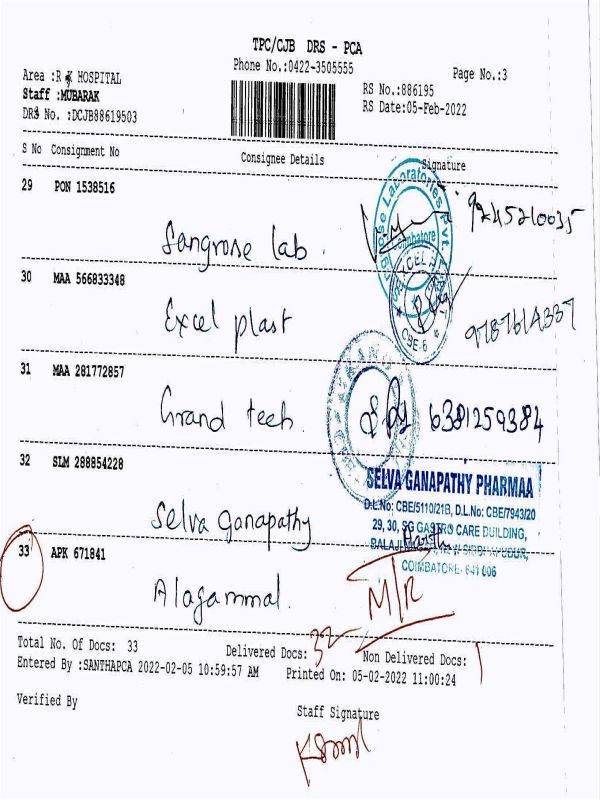 TPC/CJB DRS - PCA
Phone No.:0422-3505555
Page No.:3
Area :R K HOSPITAL
Staff :MUBARAK
DRS No. :DCJB88619503
RS No.:886195
RS Date:05-Feb-2022
S No Consignment No Consignee Details Signature
29 PON 1538516
Sangrose lab.
9245210035
30 MAA 566833348
Excel plast
9787614337
31 MAA 281772857
Grand tech.
6381259384
32 SLM 288854228
Selva Ganapathy
SELVA GANAPATHY PHARMAA
D.L.No: CBE/5110/21B, D.L.No: CBE/7943/20
29, 30, SG GASTRO CARE BUILDING,
COIMBATORE- 641 006
33 APK 671841
Alagammal.
M/R
Total No. Of Docs: 33 Delivered Docs: 32 Non Delivered Docs: 1
Entered By :SANTHAPCA 2022-02-05 10:59:57 AM Printed On: 05-02-2022 11:00:24
Verified By
Staff Signature